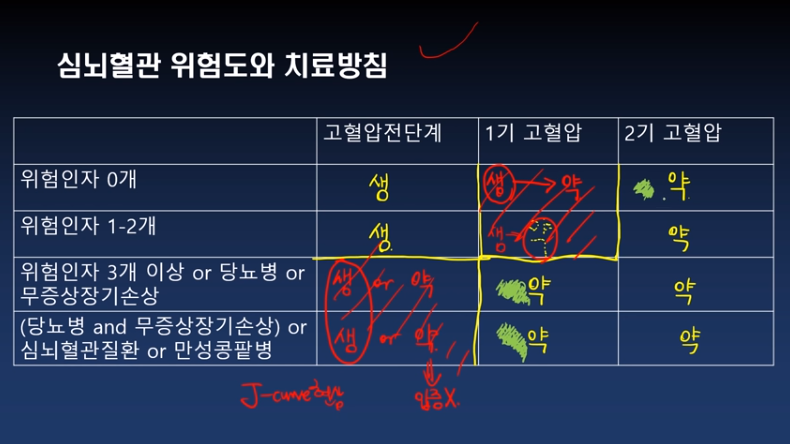 심뇌혈관 위험도와 치료방침
고혈압전단계 1기 고혈압 2기 고혈압
위험인자 0개 생 생 → 약 약
위험인자 1-2개 생 생→ 약
위험인자 3개 이상 or 당뇨병 or
무증상장기손상 생 or 약 약 약
(당뇨병 and 무증상장기손상) or
심뇌혈관질환 or 만성콩팥병 생 or 약 약 약
J-curve현상 입증X